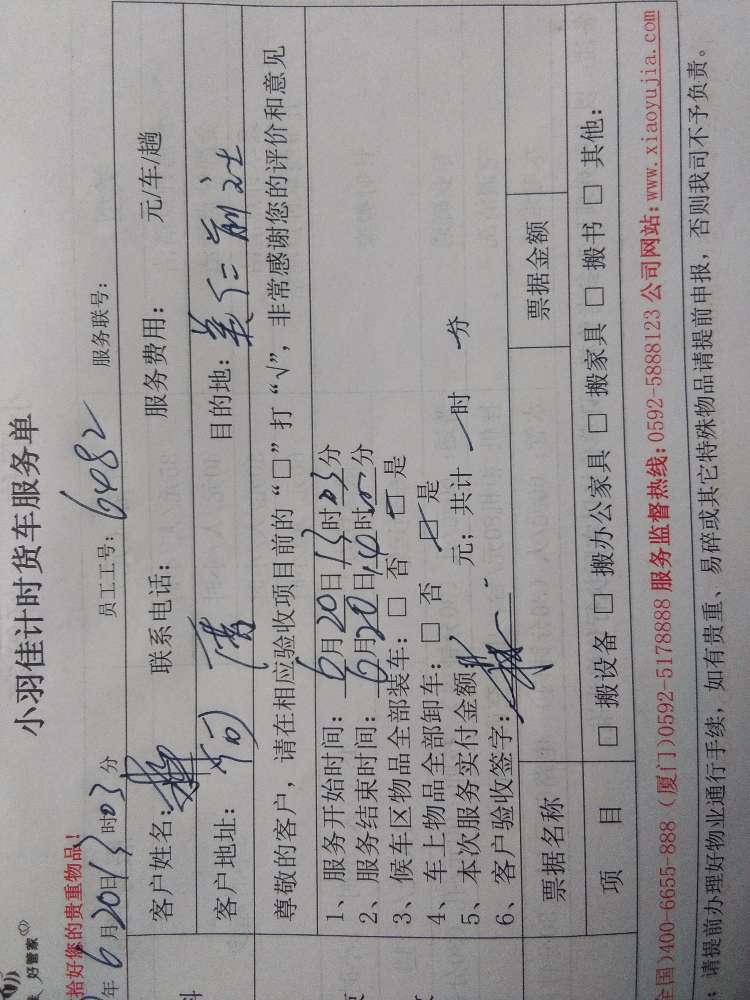 小羽佳计时货车服务单
好管家
拾好您的贵重物品！
年 6 月 20 日 13 时 03 分 员工工号： 6482 服务联号：
客户姓名： 联系电话： 服务费用： 元/车/趟
客户地址： 目的地：
尊敬的客户，请在相应验收项目前的“□”打“√”，非常感谢您的评价和意见
1、服务开始时间： 6 月 20 日 13 时 03 分
2、服务结束时间： 6 月 20 日 14 时 分
3、候车区物品全部装车：□ 否 □ 是
4、车上物品全部卸车：□ 否 □ 是
5、本次服务实付金额 元；共计 时 分
6、客户验收签字：
票据名称 票据金额
项 目 □ 搬设备 □ 搬办公家具 □ 搬家具 □ 搬书 □ 其他：
全国)400-6655-888 (厦门)0592-5178888 服务监督热线：0592-5888123 公司网站：www.xiaoyujia.com
：请提前办理好物业通行手续，如有贵重、易碎或其它特殊物品请提前申报，否则我司不予负责。